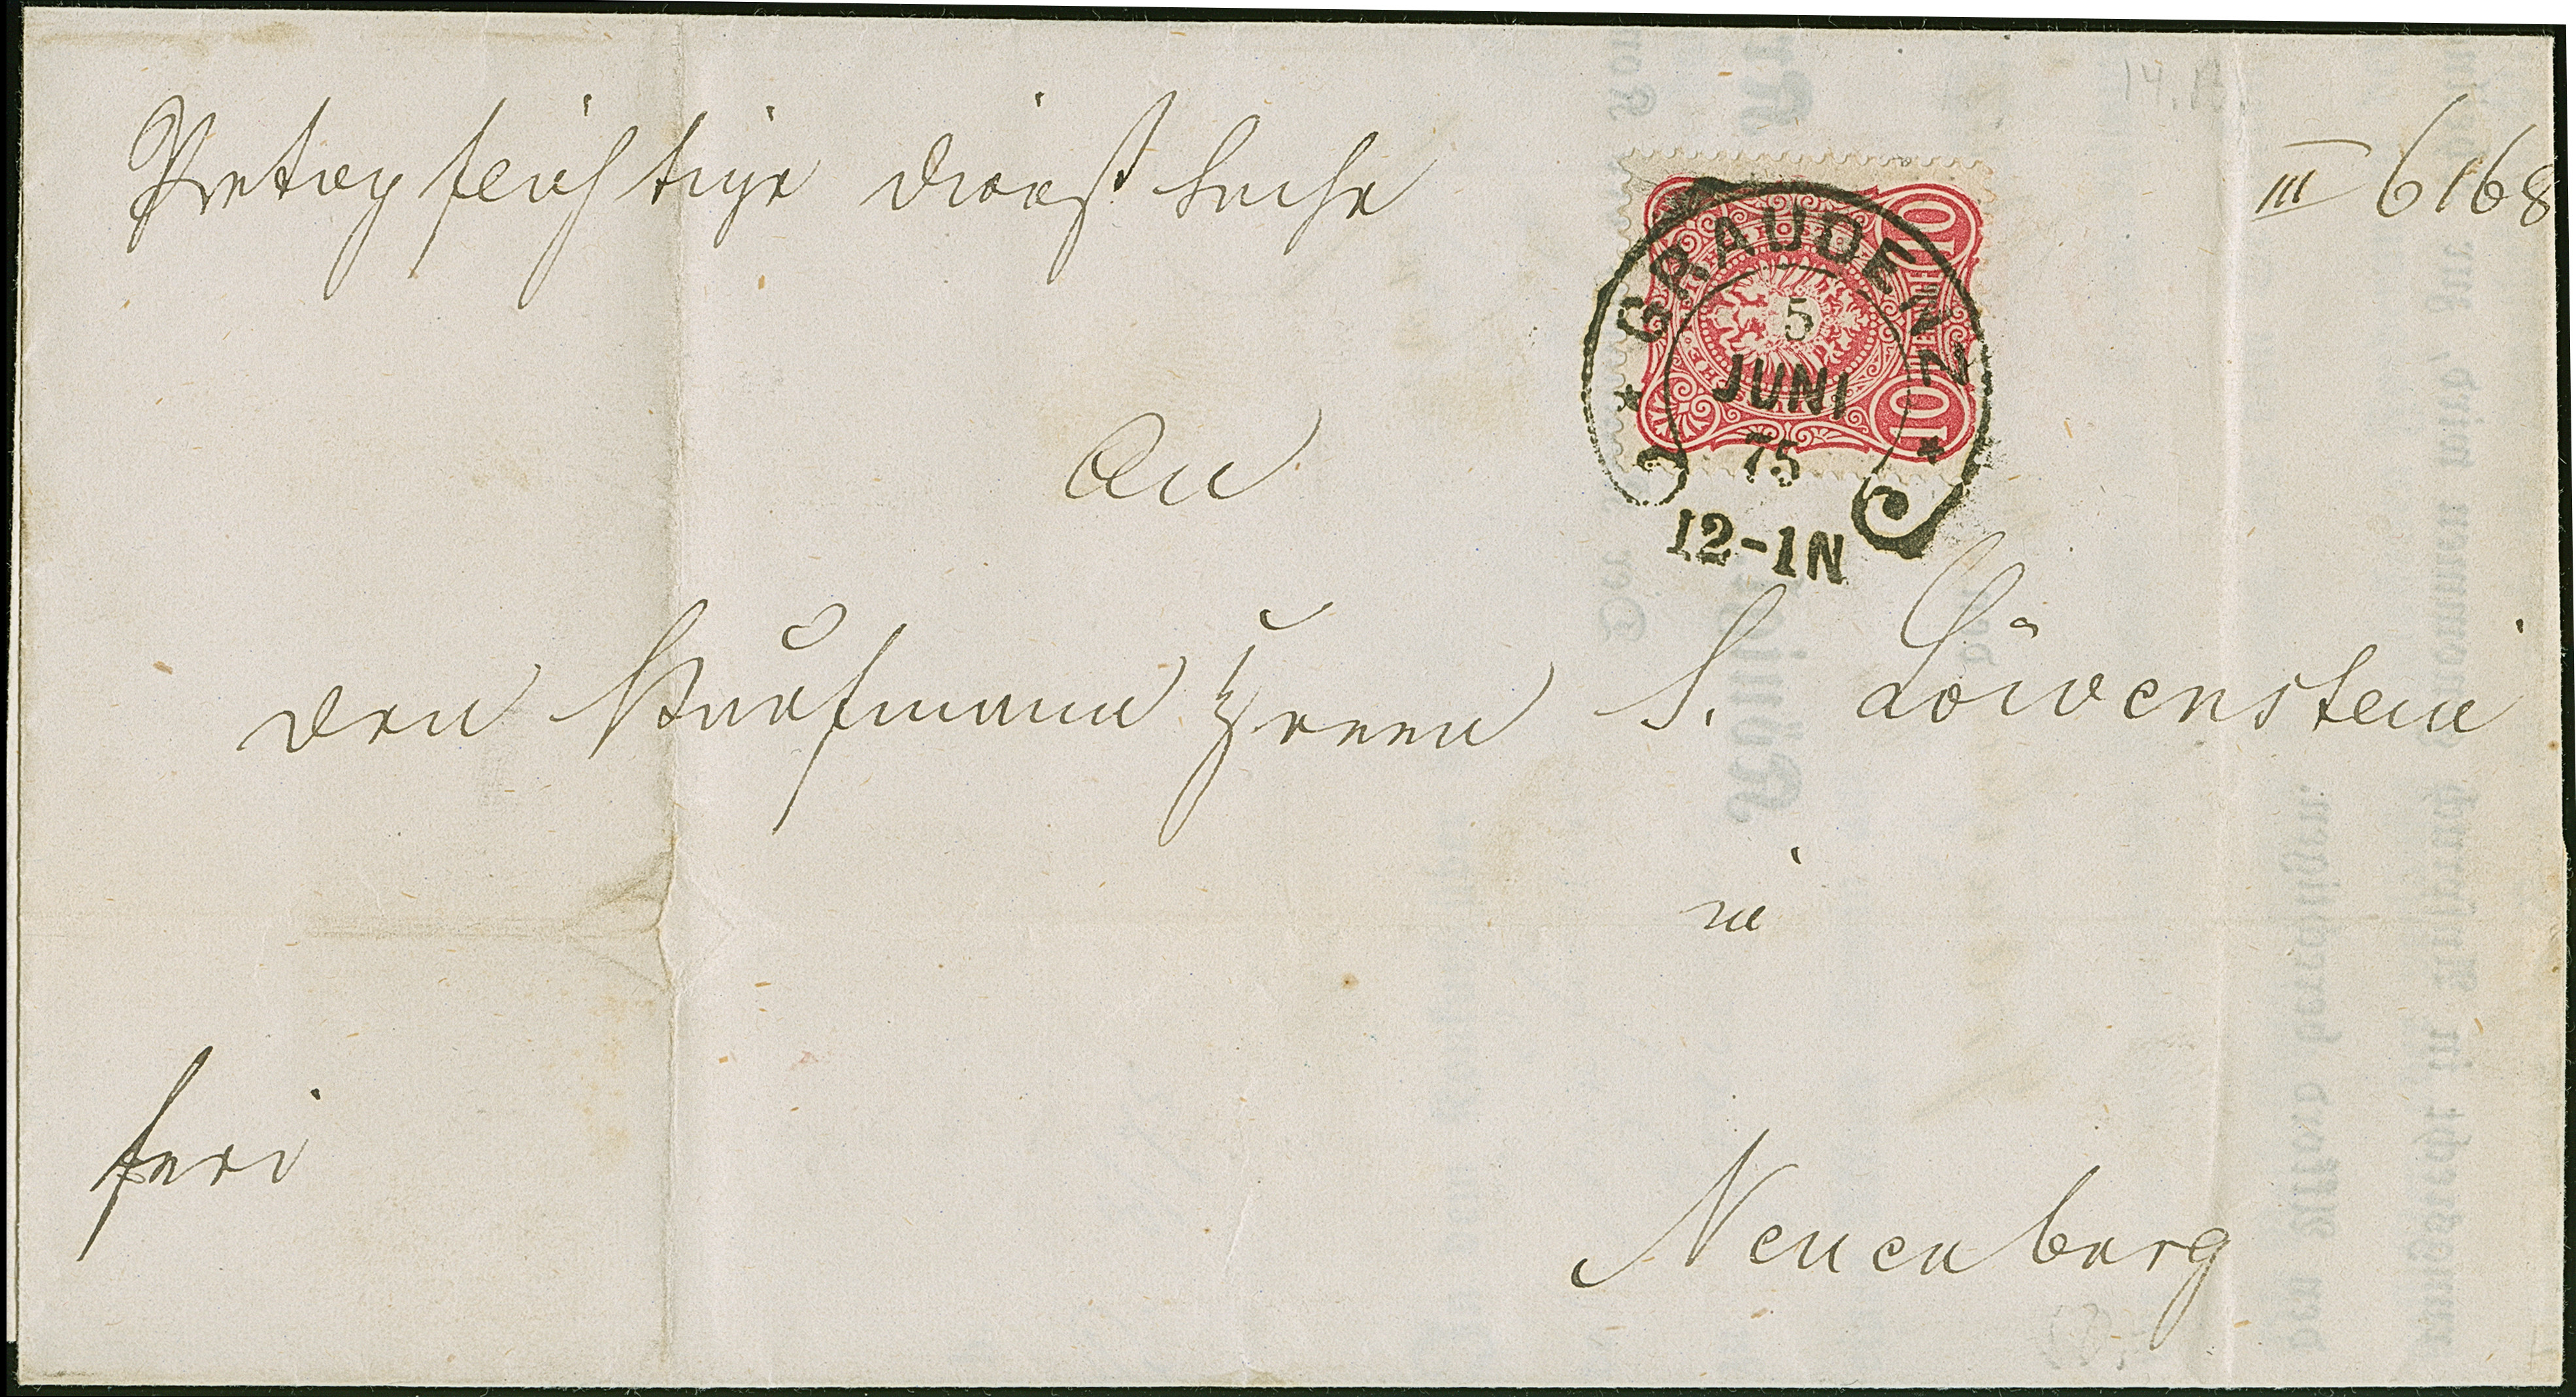 Portopflichtige Dienstsache
III 6168
GRAUDENZ
5
JUNI
75
12-1N
10
10
An
den Kaufmann Herrn S. Löwenstein
in
frei
Neuenburg